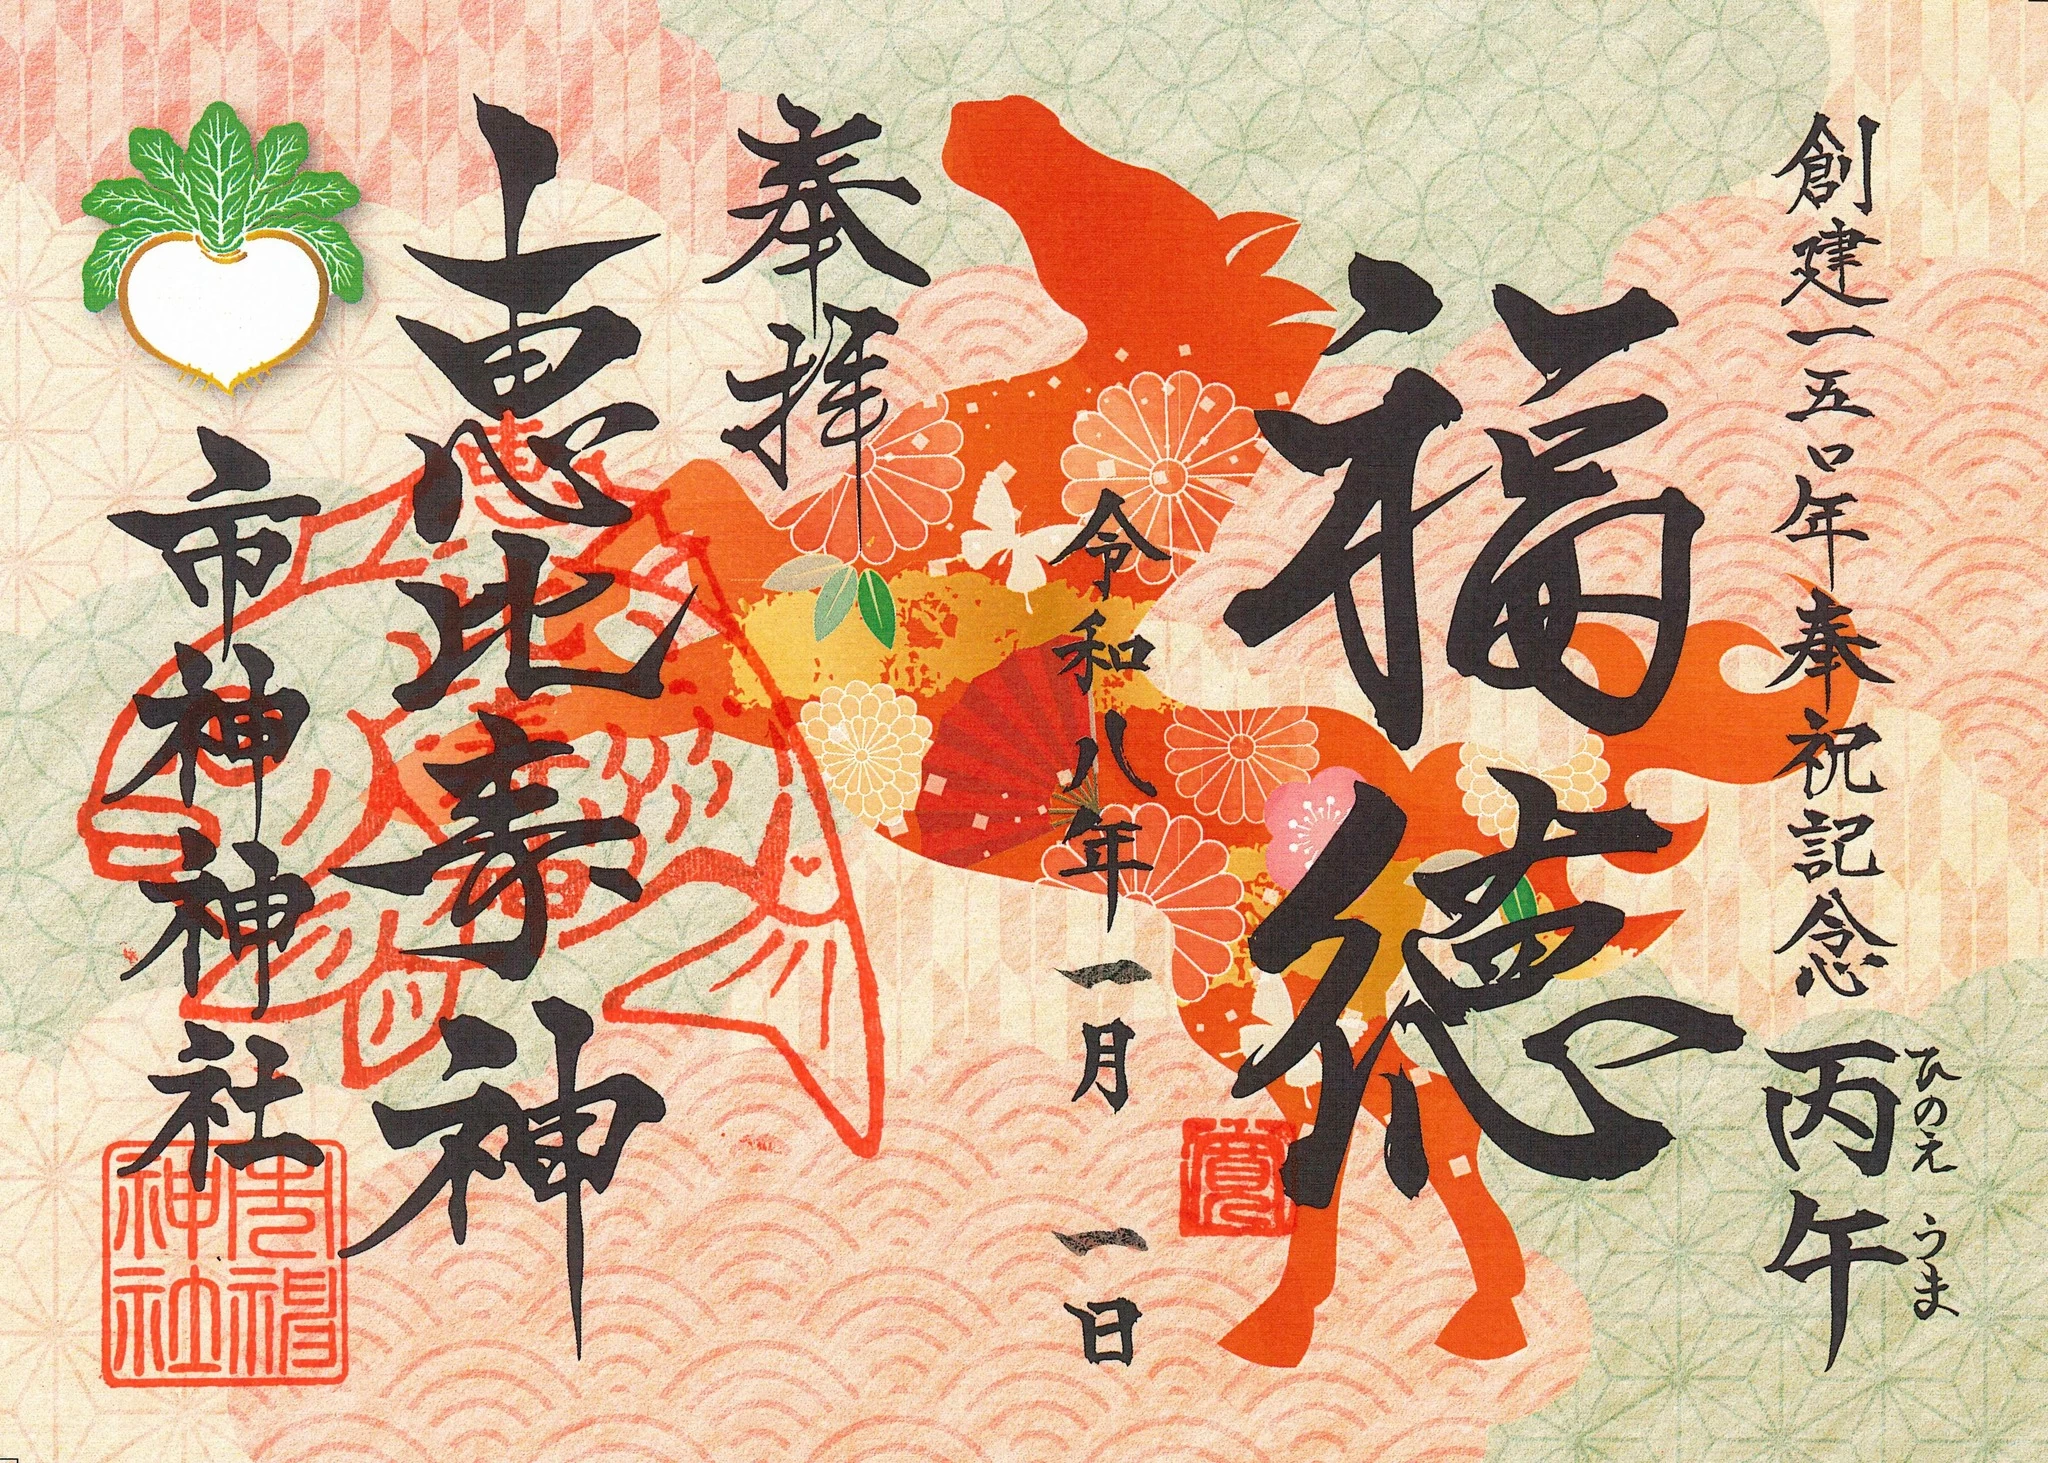 創建一五〇年奉祝記念 丙午
ひのえ うま
福徳
令和八年 一月 一日
奉拝
恵比寿神
市神神社
市神神社